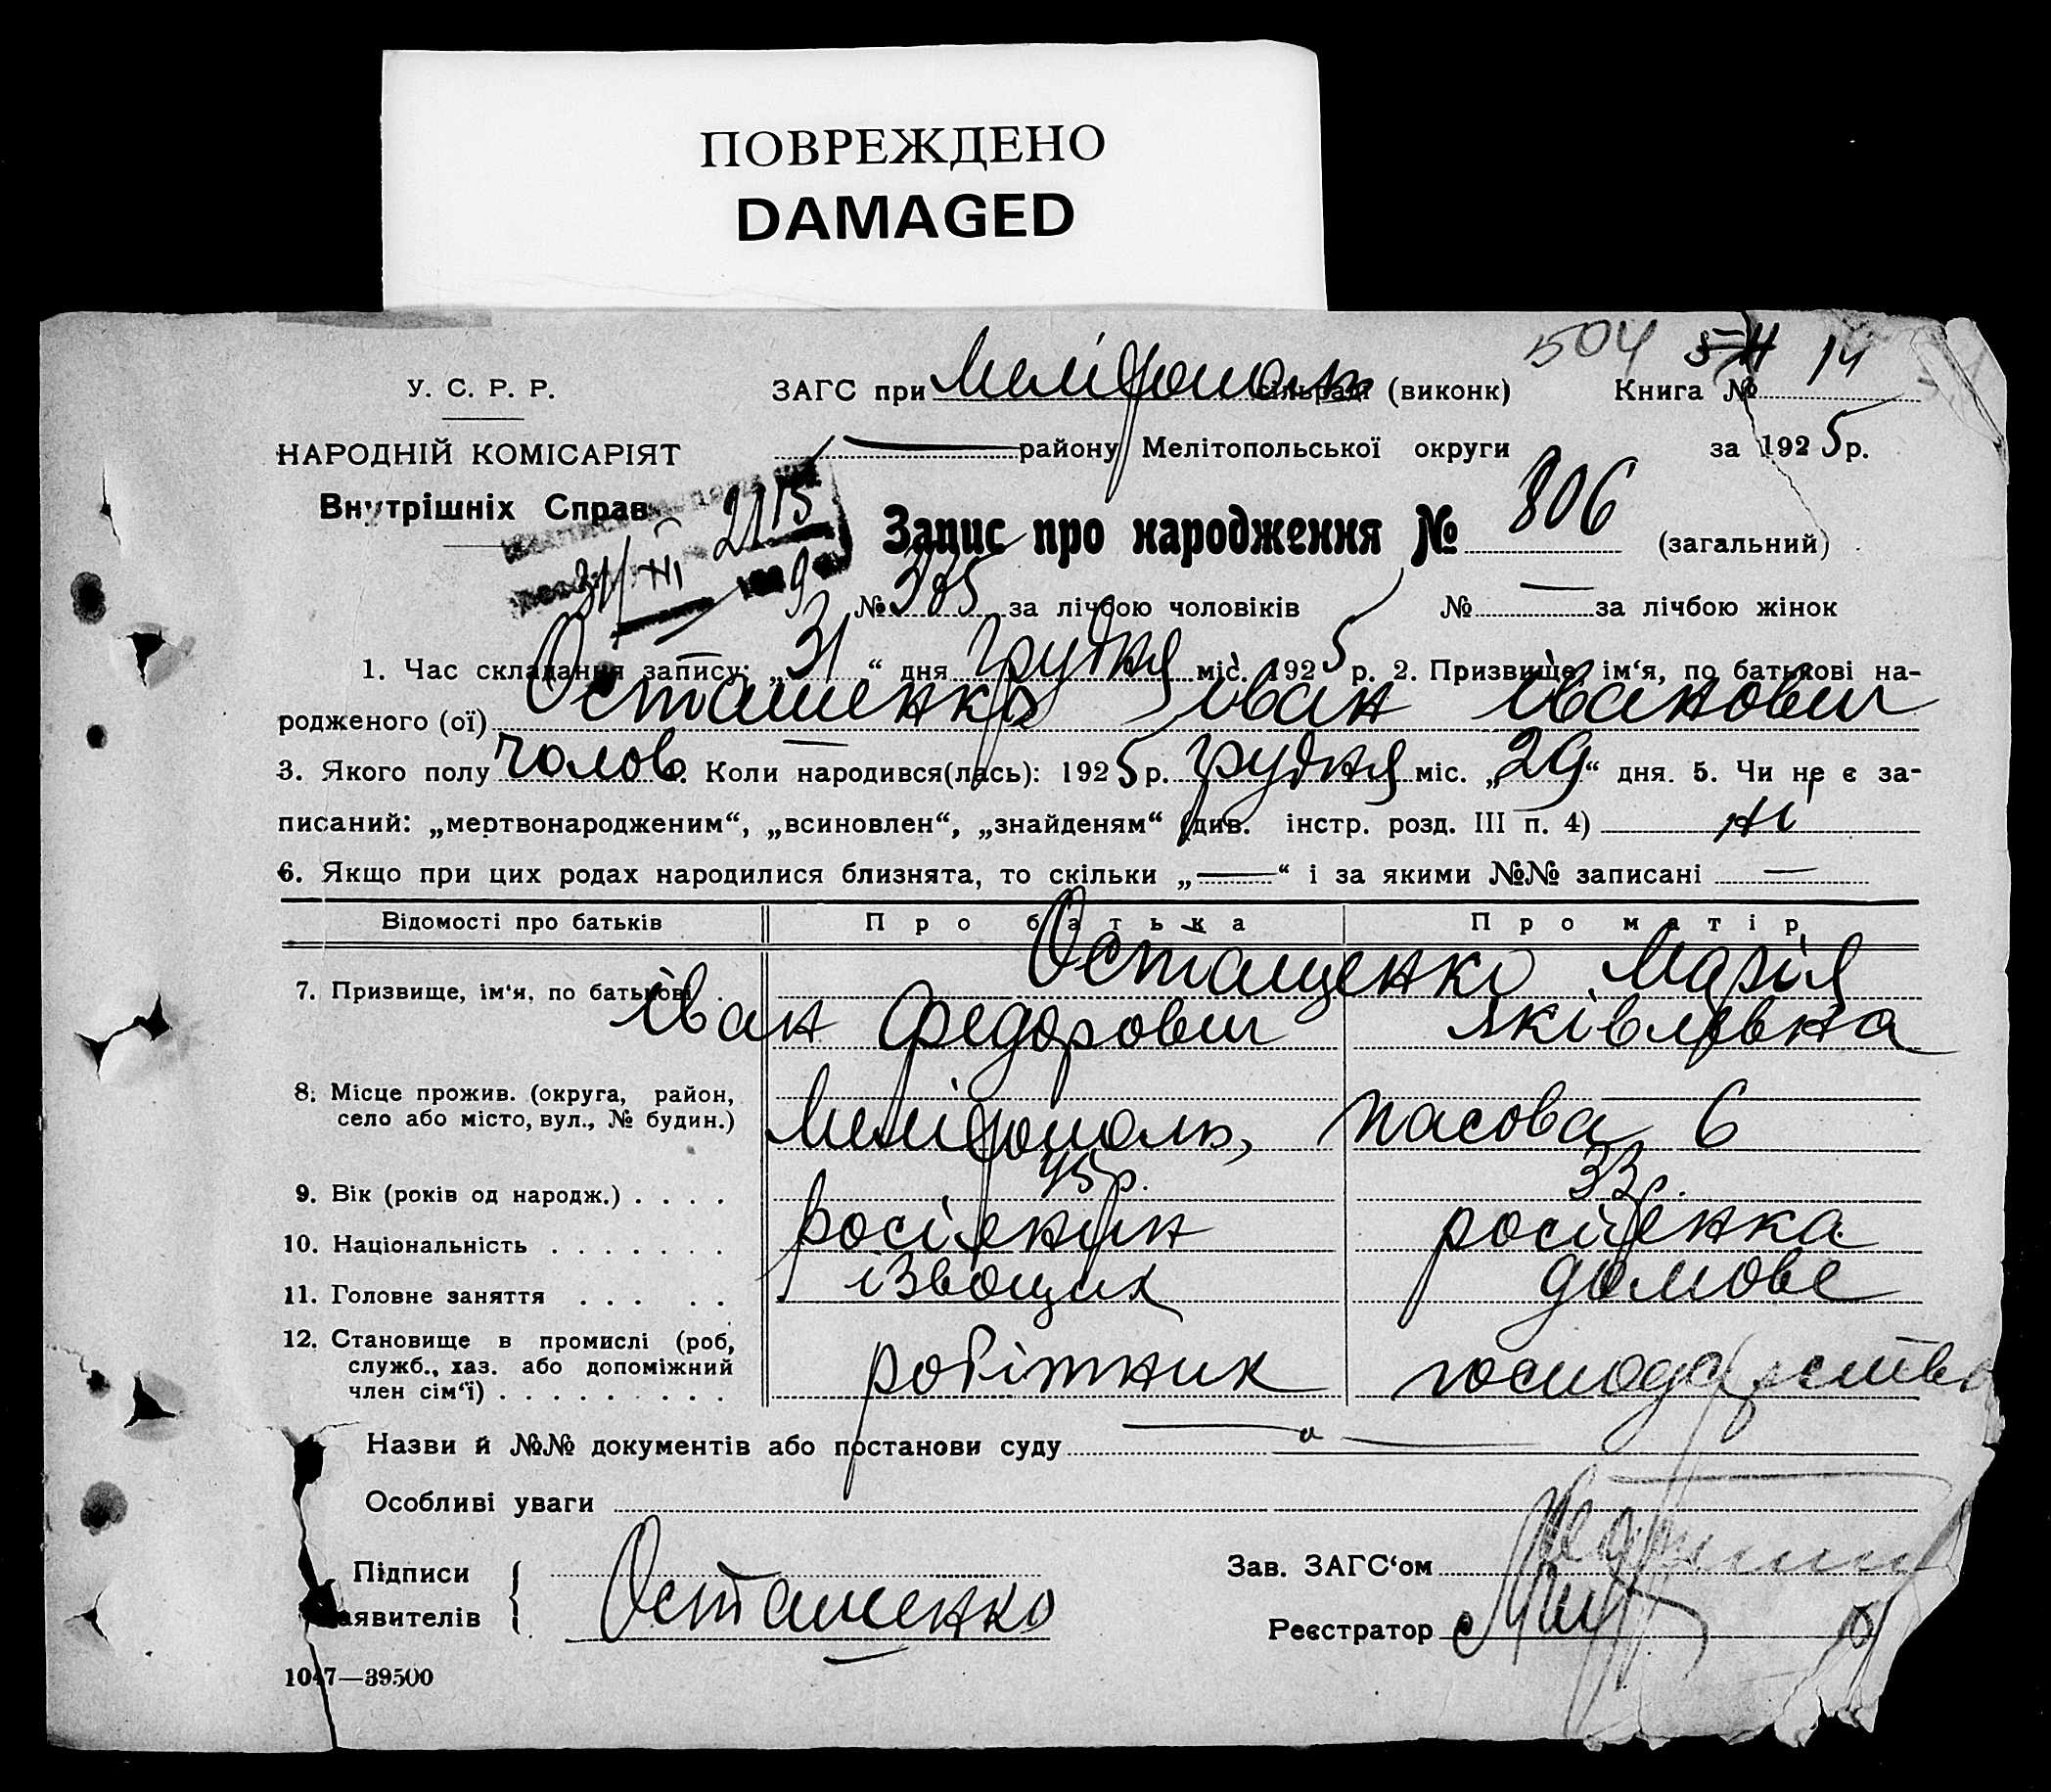 ПОВРЕЖДЕНО
DAMAGED
504 14
У. С. Р. Р.
ЗАГС при Мелітополь сільраді (виконк) Книга №
НАРОДНІЙ КОМІСАРІЯТ
району Мелітопольської округи за 1925 р.
Внутрішніх Справ
2115
31/XII 9
Запис про народження № 806 (загальний)
№ 335 за лічбою чоловіків № — за лічбою жінок
1. Час складання запису: „31“ дня грудня міс. 1925 р. 2. Призвище, ім‘я, по батькові на-
родженого (ої) Осташенко Іван Іванович
3. Якого полу чолов. Коли народився(лась): 1925 р. грудня міс. „29“ дня. 5. Чи не є за-
писаний: „мертвонародженим“, „всиновлен“, „знайденям“ (див. інстр. розд. III п. 4) ні
6. Якщо при цих родах народилися близнята, то скільки „—“ і за якими №№ записані —
Відомості про батьків Про батька Про матір
7. Призвище, ім‘я, по батькові Осташенко Марія
Іван Федорович Яківлевна
8. Місце прожив. (округа, район,
село або місто, вул., № будин.) Мелітополь, 6
9. Вік (років од народж.) . . . . 45 р. 33 р.
10. Національність . . . . . . . росіянин росіянка
11. Головне заняття . . . . . ізвощик домове
12. Становище в промислі (роб,
служб., хаз. або допоміжний
член сім‘ї) . . . . . . . . . робітник господарство
Назви й №№ документів або постанови суду
Особливі уваги
Підписи
Зав. ЗАГС‘ом
аявителів Осташенко
Реєстратор
1047—39500